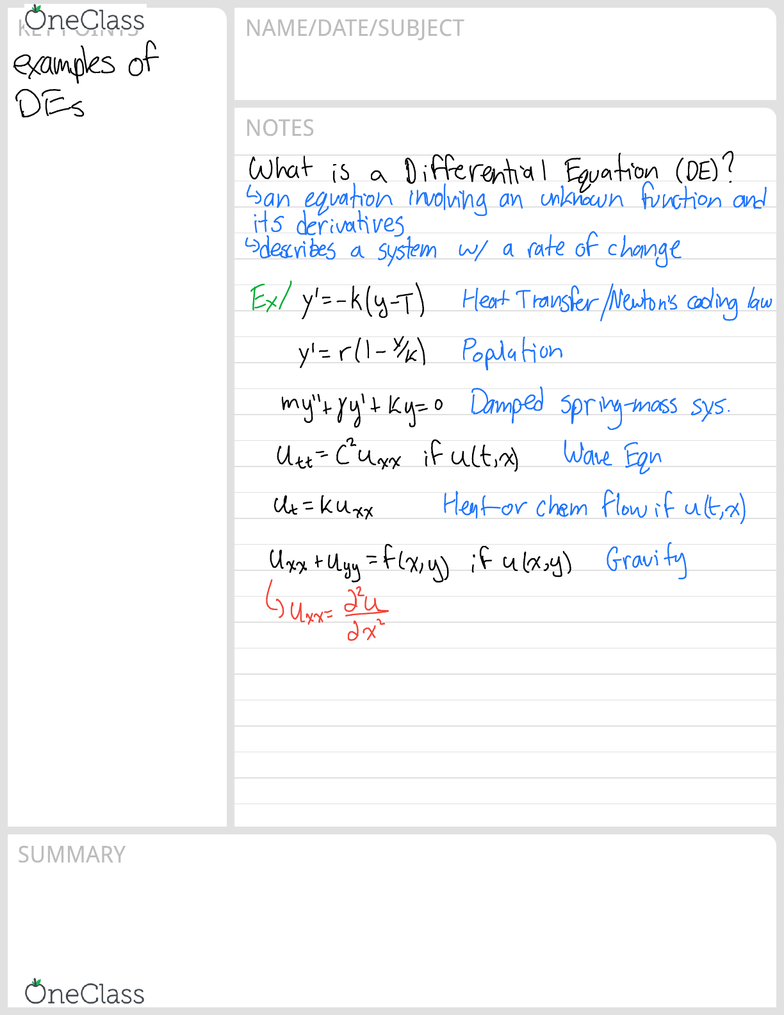 OneClass
KEY POINTS
examples of
DEs
NAME/DATE/SUBJECT
NOTES
What is a Differential Equation (DE)?
↳an equation involving an unknown function and
its derivatives
↳describes a system w/ a rate of change
Ex/ y'=-k(y-T) Heat Transfer/Newton's cooling law
y'=r(1-y/k) Poplation
my"+γy'+ky=0 Damped spring-mass sys.
u_tt=c²u_xx if u(t,x) Wave Eqn
u_t=ku_xx Heat or chem flow if u(t,x)
u_xx+u_yy=f(x,y) if u(x,y) Gravity
↳u_xx=∂²u/∂x²
SUMMARY
OneClass